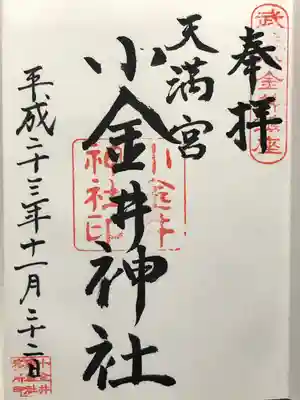 奉拝
天満宮
小金井神社
平成二十三年十一月二十二日
小金井
神社印